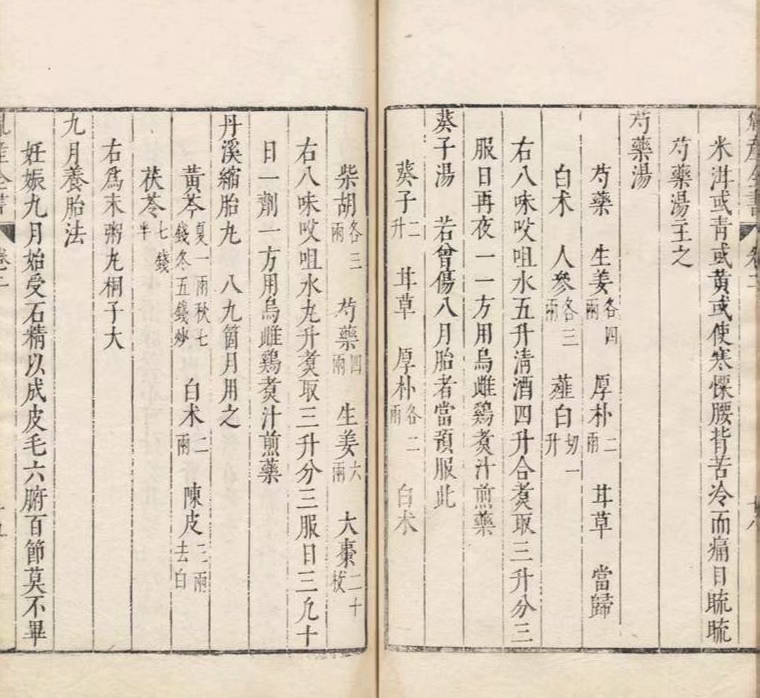 米泔或青或黃或使寒慄腰背苦冷而痛目䀮䀮
芍藥湯主之
芍藥湯
芍藥 生姜各四兩 厚朴二兩 甘草 當歸
白术 人參各三兩 薤白切一升
右八味㕮咀水五升清酒四升合煑取三升分三
服日再夜一一方用烏雌鷄煑汁煎藥
葵子湯 若曾傷八月胎者當預服此
葵子二升 甘草 厚朴各二兩 白术
柴胡各三兩 芍藥四兩 生姜六兩 大棗二十枚
右八味㕮咀水九升煑取三升分三服日三凢十
日一劑一方用烏雌鷄煑汁煎藥
丹溪縮胎丸 八九箇月用之
黃芩夏一兩秋七錢冬五錢炒 白术二兩 陳皮三兩去白
茯苓七錢半
右爲末粥丸桐子大
九月養胎法
妊娠九月始受石精以成皮毛六腑百節莫不畢